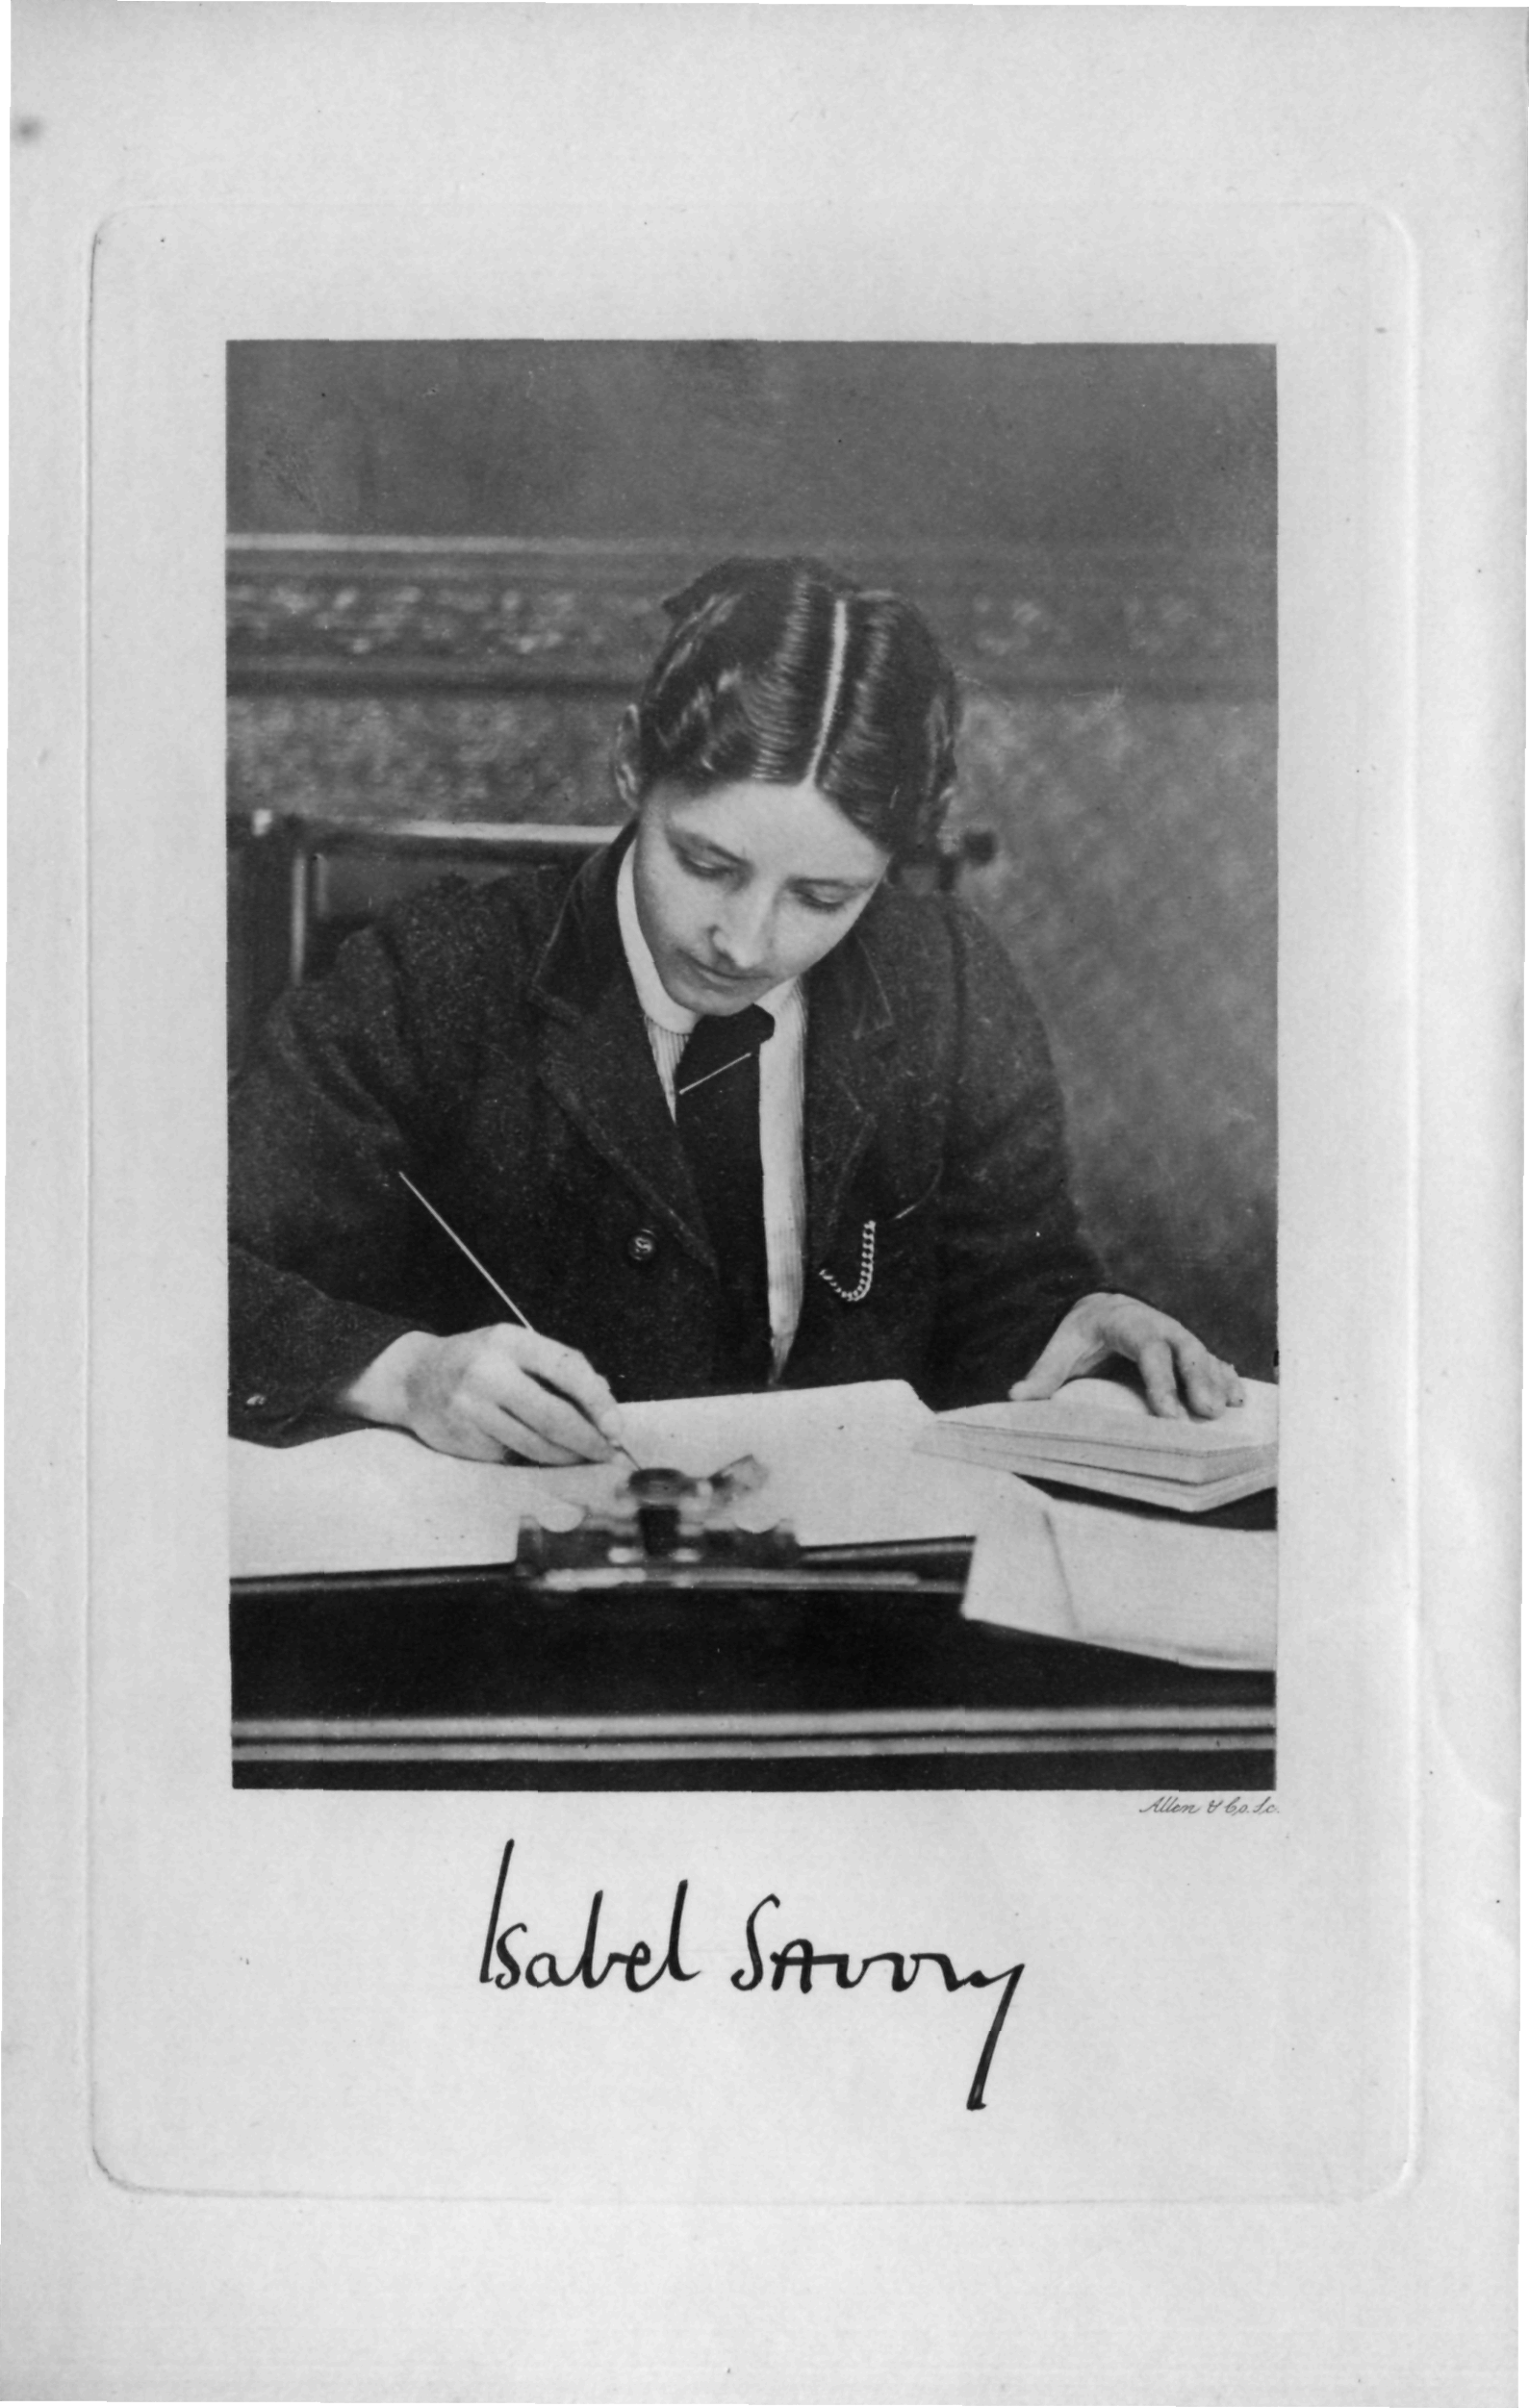 Allen & Co. Sc.
Isabel Savory